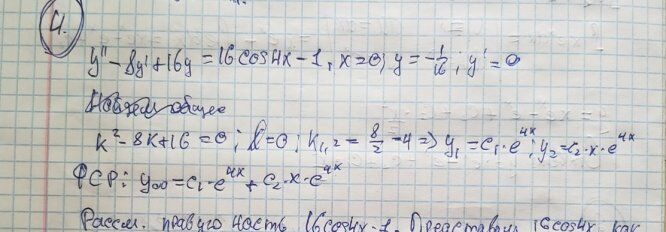 4.
y'' - 8y' + 16y = 16 cos4x - 1, x=0; y = -1/16; y' = 0
Найдем общее
k² - 8k + 16 = 0; D=0; k₁,₂ = 8/2 = 4 => y₁ = c₁·e^4x; y₂ = c₂·x·e^4x
ФСР: y₀₀ = c₁·e^4x + c₂·x·e^4x
Рассм. правую часть 16cos4x - 1. Представим 16cos4x как